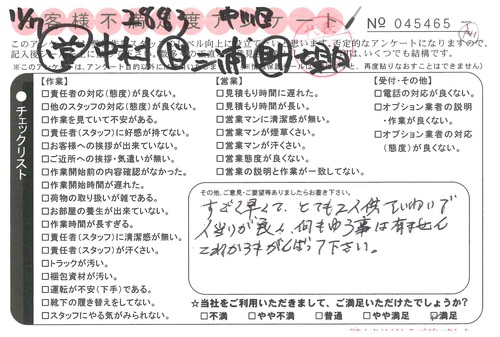 お客様不満足度アンケート
No 045465
このアンケートは
否定的なアンケートになりますので、
記入後
いくつでも結構です。
再度貼りなおすことはできません)
チェックリスト
【作業】
□責任者の対応(態度)が良くない。
□他のスタッフの対応(態度)が良くない。
□作業を見ていて不安がある。
□責任者(スタッフ)に好感が持てない。
□お客様への挨拶が出来ていない。
□ご近所への挨拶・気遣いが無い。
□作業開始前の内容確認がなかった。
□作業開始時間が遅れた。
□荷物の取り扱いが雑である。
□お部屋の養生が出来ていない。
□作業時間が長すぎる。
□責任者(スタッフ)に清潔感が無い。
□責任者(スタッフ)が汗くさい。
□トラックが汚い。
□梱包資材が汚い。
□運転が不安(下手)である。
□靴下の履き替えをしてない。
□スタッフにやる気がみられない。
【営業】
□見積もり時間に遅れた。
□見積もり時間が長い。
□営業マンに清潔感が無い。
□営業マンが煙草くさい。
□営業マンが汗くさい。
□営業態度が良くない。
□営業の説明と作業が一致してない。
【受付・その他】
□電話の対応が良くない。
□オプション業者の説明
・作業が良くない。
□オプション業者の対応
(態度)が良くない。
その他、ご意見・ご要望等ありましたらお書き下さい。
すごく早くて、とても
ていねいで
人当りが良く、何もゆう事は有ません
これからもがんばって下さい。
☆当社をご利用いただきまして、ご満足いただけたでしょうか?
□不満 □やや不満 □普通 □やや満足 ☑満足